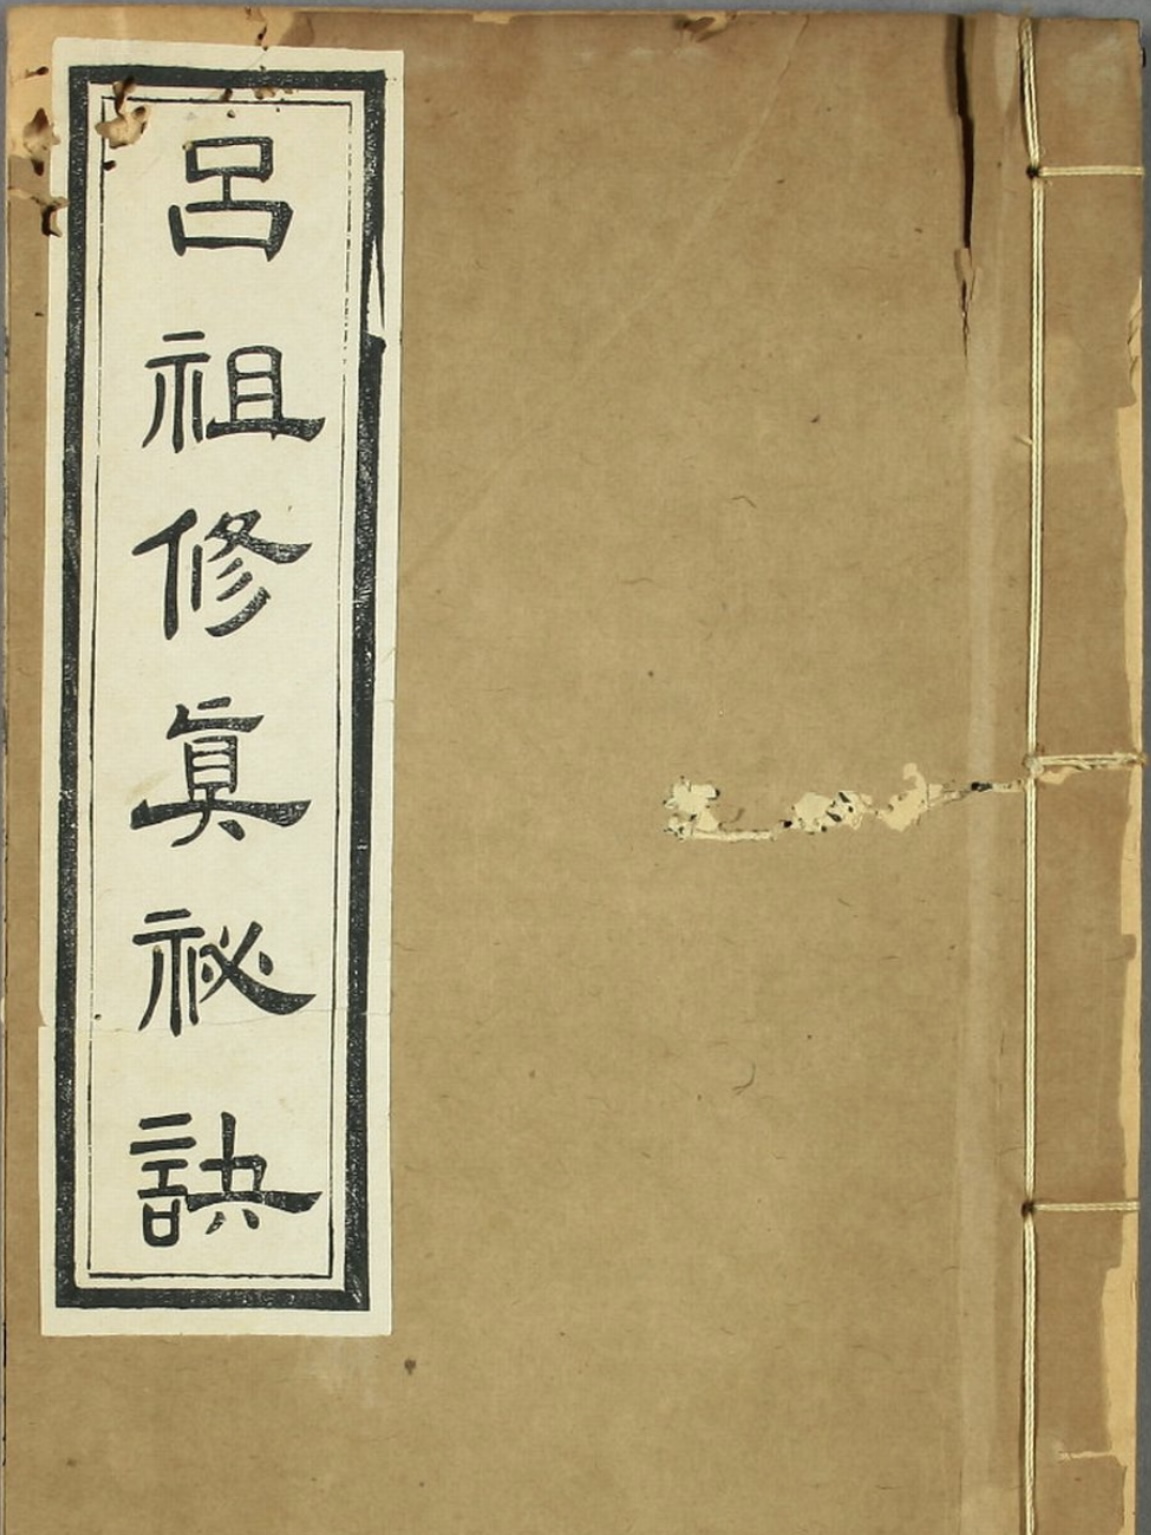 呂祖修眞祕訣